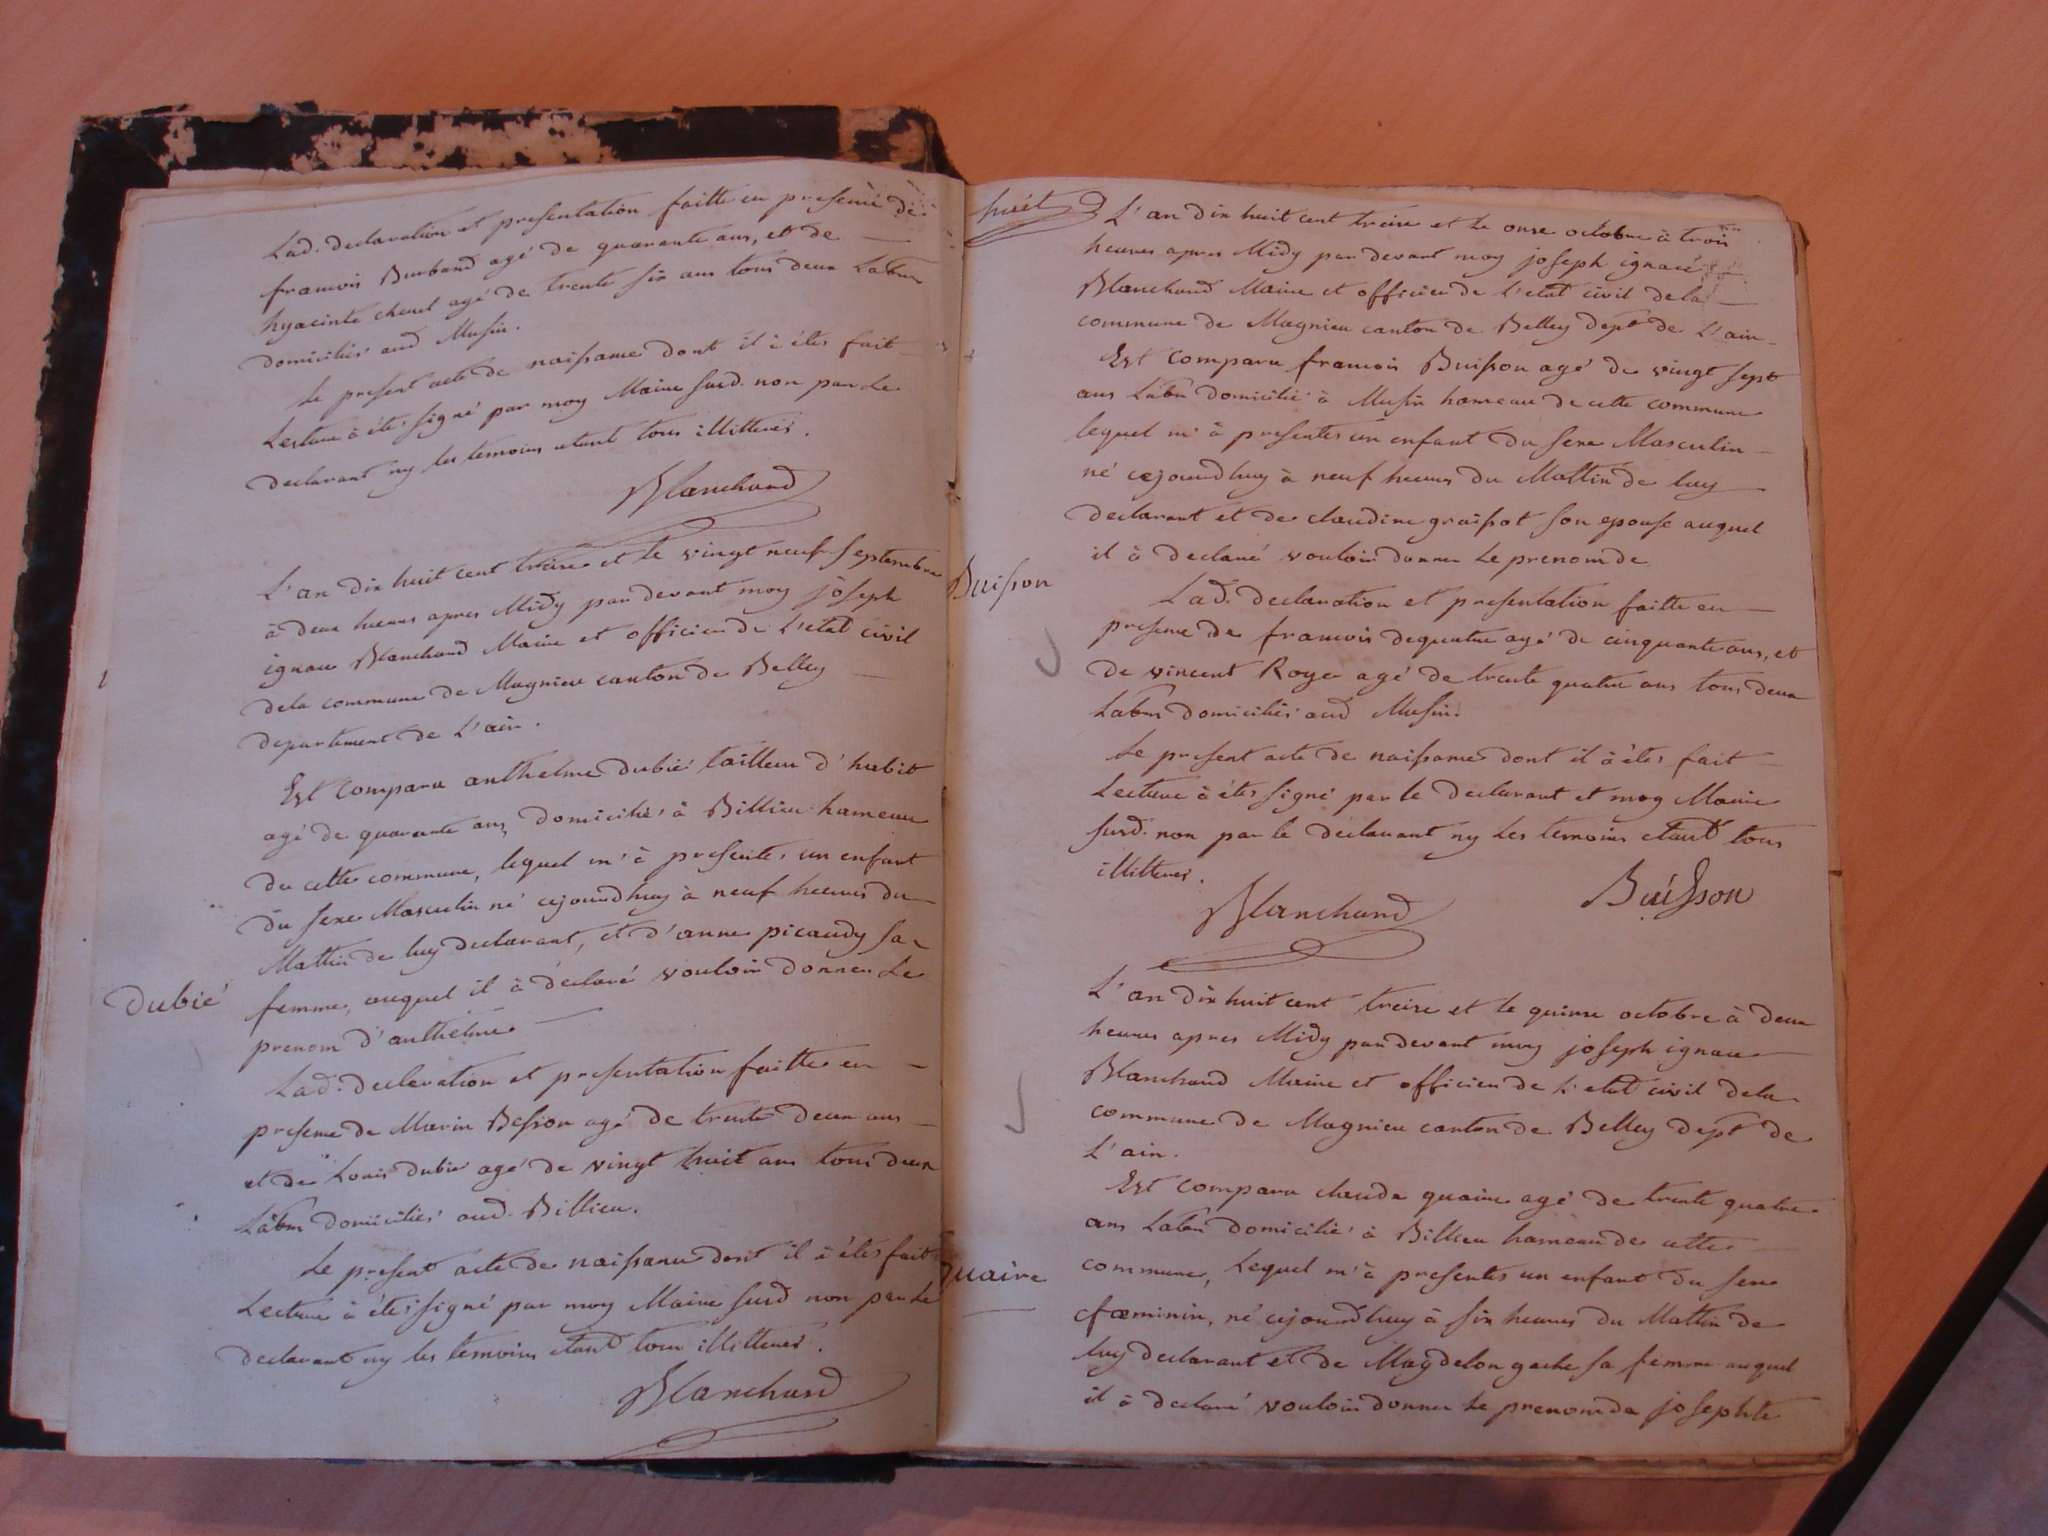 Lad. declaration et presentation faitte en presence de
francois Burband agé de quarante ans, et de
hyacinte chenet agé de trente six ans tous deux Labrs
domiciliés aud Musin.
Le present acte de naissance dont il à étés fait
Lecture à étés signé par moy Maire susd. non par Le
declarant ny les temoins etant tous illitterés.
Blanchard
L'an dix huit cent treize et le vingt neuf septembre
à deux heures apres Midy par devant moy joseph
ignace Blanchard Maire et officier de L'etat civil
dela commune de Magnieu canton de Belley
departement de L'ain.
Est Comparu anthelme dubié tailleur d'habit
agé de quarante ans, domiciliés à Billieu hameau
de cette commune, lequel m'à presentés un enfant
du sexe Masculin né cejourdhuy à neuf heures du
Mattin de luy declarant, et d'anne picaudy sa
dubié
femme, auquel il à déclaré vouloir donner Le
prenom d'anthelme
Lad. declaration et presentation faitte en
presence de Marin Besson agé de trente deux ans
et de Louis dubié agé de vingt huit ans tous deux
Labrs domiciliés aud. Billieu.
Le present acte de naissance dont il à étés fait
Lecture à étés signé par moy Maire susd non par Le
declarant ny les temoins etant tous illitterés.
Blanchard
huit
L'an dix huit cent treize et le onze octobre à trois
heures apres Midy par devant moy joseph ignace
Blanchard Maire et officier de L'etat civil dela
commune de Magnieu canton de Belley dept de L'ain
Est Comparu francois Buisson agé de vingt sept
ans Labr domicilié à Musin hameau de cette commune
lequel m'à presentés un enfant du sexe Masculin
né cejourdhuy à neuf heures du Mattin de luy
declarant et de claudine graissot son epouse auquel
il à declaré vouloir donner Le prenom de
Buisson
Lad. declaration et presentation faitte en
presence de francois dequatre agé de cinquante ans, et
de vincent Roye agé de trente quatre ans tous deux
Labrs domiciliés aud Musin.
Le present acte de naissance dont il à étés fait
Lecture à étés signé par le declarant et moy Maire
susd. non par le declarant ny Les temoins etant tous
illitterés.
Blanchard
Buisson
L'an dix huit cent treize et le quinze octobre à deux
heures apres Midy par devant moy joseph ignace
Blanchard Maire et officier de L'etat civil dela
commune de Magnieu canton de Belley dept de
L'ain.
Est Comparu claude quaire agé de trente quatre
ans Labr domicilié à Billieu hameau de cette
quaire
commune, Lequel m'à presentés un enfant du sexe
fœminin, né cejourdhuy à six heures du Mattin de
luy declarant et de Magdelon gache sa femme auquel
il à declaré vouloir donner Le prenom de josephte